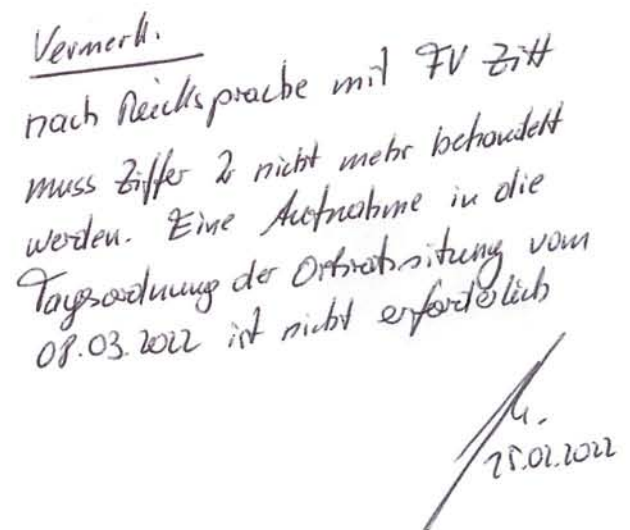 Vermerk.
nach Rücksprache mit FV Zitt
muss Ziffer 2 nicht mehr behandelt
werden. Eine Aufnahme in die
Tagesordnung der Ortsratssitzung vom
08.03.2022 ist nicht erforderlich
25.02.2022